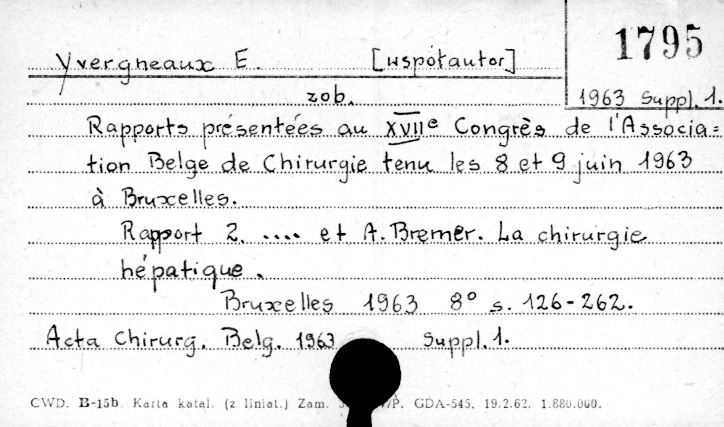 1795
Yvergneaux E. [współautor]
zob. 1963 Suppl. 1.
Rapports présentées au XVIIe Congrès de l'Associa=
tion Belge de Chirurgie tenu les 8 et 9 juin 1963
à Bruxelles.
Rapport 2. .... et A. Bremer. La chirurgie
hépatique.
Bruxelles 1963 8° s. 126-262.
Acta Chirurg. Belg. 1963 Suppl. 1.
CWD. B-15b. Karta katal. (z liniat.) Zam. GDA-545. 19.2.62. 1.880.000.